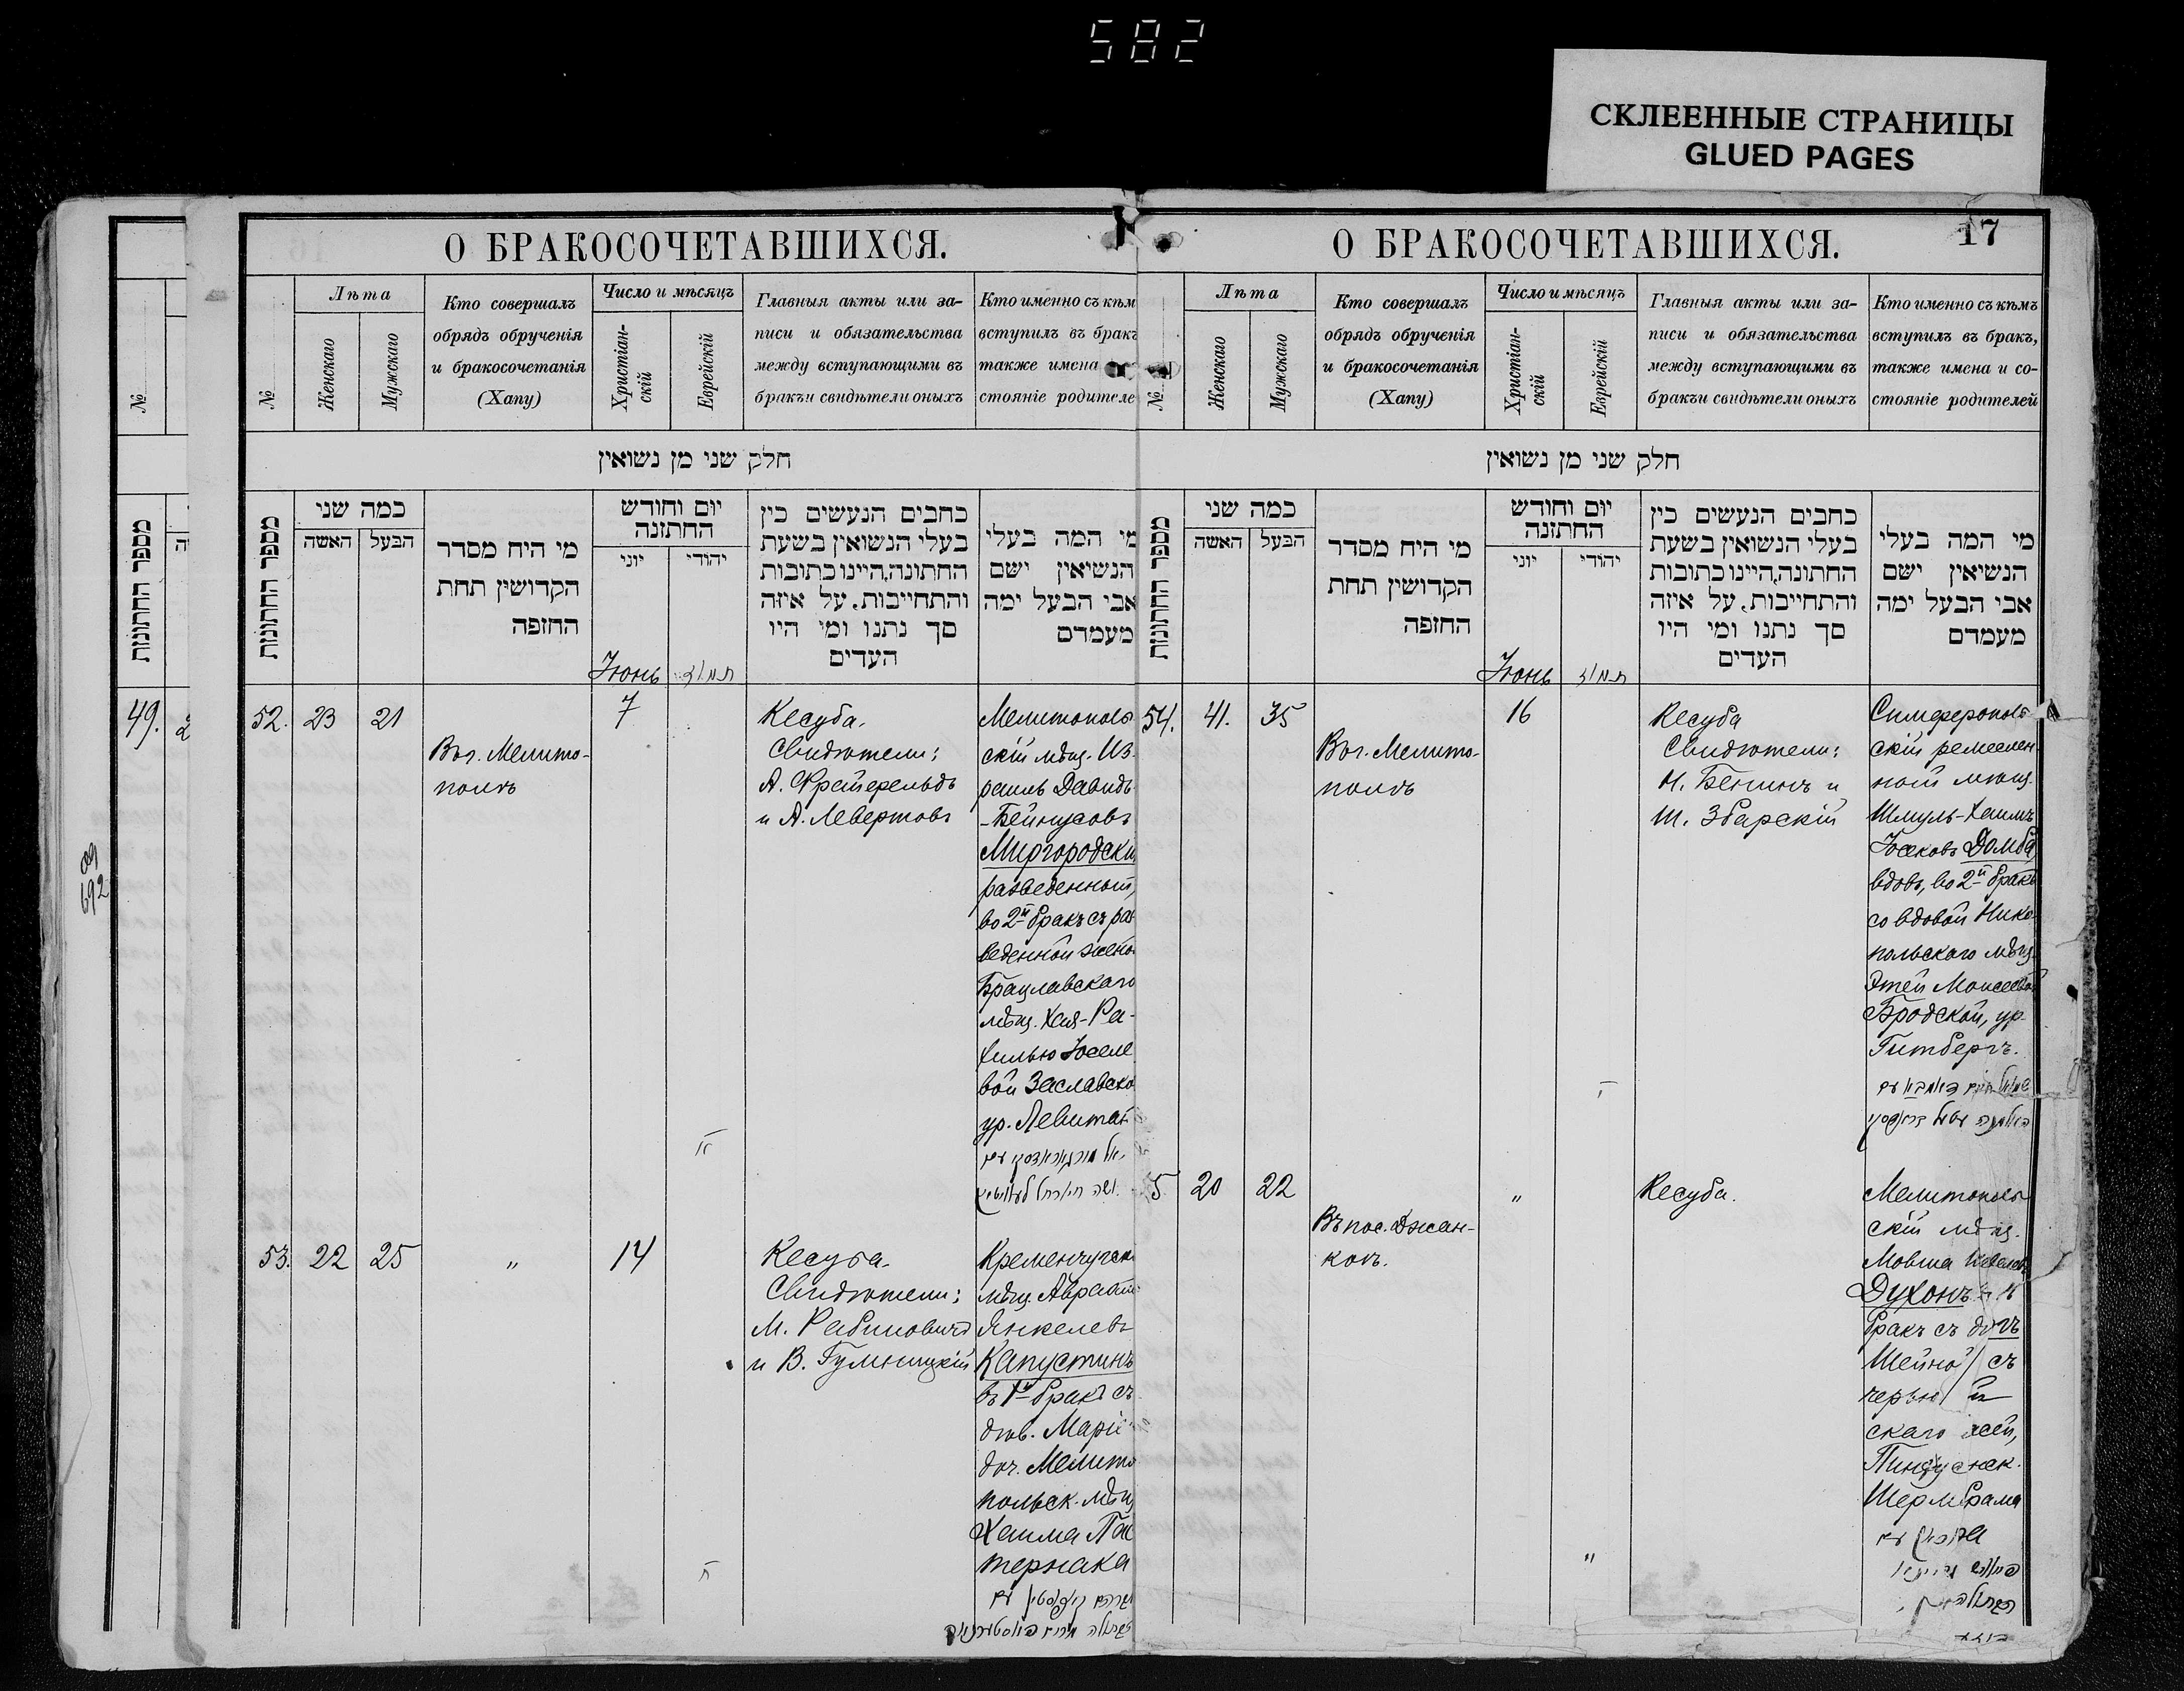 582
СКЛЕЕННЫЕ СТРАНИЦЫ
GLUED PAGES
О БРАКОСОЧЕТАВШИХСЯ.
№
Лѣта
Женскаго
Мужскаго
Кто совершалъ
обрядъ обрученія
и бракосочетанія
(Хапу)
Число и мѣсяцъ
Христіан-
скій
Еврейскій
Главныя акты или за-
писи и обязательства
между вступающими въ
бракъи свидѣтели оныхъ
Кто именно съ кѣм
вступилъ въ бракъ
также имена
стояніе родителе
חלק שני מן נשואין
מספר החתונות
כמה שני
האשה
הבעל
מי היח מסדר
הקדושין תחת
החופה
יום וחודש
החתונה
יוני
יהודי
כחבים הנעשים כין
בעלי הנשואין בשעת
החתונה,היינו כתובות
והתחייבות, על איזה
סך נתנו ומי היו
העדים
מי המה בעלי
הנשיאין ישם
אבי הבעל ימה
מעמדם
Іюнь
תמוז
49.
52. 23 21
Въ г. Мелито-
полѣ
7
Кесуба.
Свидѣтели:
А. Фрейфельдъ
и А. Левертовъ
Мелитополь
скій мѣщ. Из-
раиль Давидъ
-Бейнусовъ
Миргородскі
разведенный,
во 2й бракъ съ раз
веденной жено
Брацлавскаго
мѣщ. Хая-Ра-
хилью Іоселе
вой Заславско
ур. Левитан
53. 22 25
"
14
Кесуба.
Свидѣтели:
М. Рабиновичъ
и В. Гумницкій
Кременчугск
мѣщ. Авраам
Янкелевъ
Капустинъ
въ 1й бракъ съ
дѣв. Маріе
доч. Мелито
польск. мѣщ
Хаима Пас
тернака
О БРАКОСОЧЕТАВШИХСЯ.
17
№
Лѣта
Женскаго
Мужскаго
Кто совершалъ
обрядъ обрученія
и бракосочетанія
(Хапу)
Число и мѣсяцъ
Христіан-
скій
Еврейскій
Главныя акты или за-
писи и обязательства
между вступающими въ
бракъи свидѣтели оныхъ
Кто именно съ кѣмъ
вступилъ въ бракъ,
также имена и со-
стояніе родителей
חלק שני מן נשואין
מספר החתונות
כמה שני
האשה
הבעל
מי היח מסדר
הקדושין תחת
החופה
יום וחודש
החתונה
יוני
יהודי
כחבים הנעשים כין
בעלי הנשואין בשעת
החתונה,היינו כתובות
והתחייבות, על איזה
סך נתנו ומי היו
העדים
מי המה בעלי
הנשיאין ישם
אבי הבעל ימה
מעמדם
Іюнь
תמוז
54. 41. 35
Въ г. Мелито-
полѣ
16
Кесуба
Свидѣтели:
Н. Бенинъ и
Ш. Збарскій
Симферополь-
скій ремеслен-
ный мѣщ.
Шмуль-Хаимъ
Іосковъ Домба
вдовъ, во 2й бракъ
со вдовой Нико-
польскаго мѣщ.
Этей Моисеевой
Бродской, ур.
Гитбергъ.
5 20 22
Въ пос. Джан-
коѣ.
"
Кесуба.
Мелитополь
скій мѣщ.
Мовша
Духонъ
бракъ съ
Шейно съ
черью
скаго